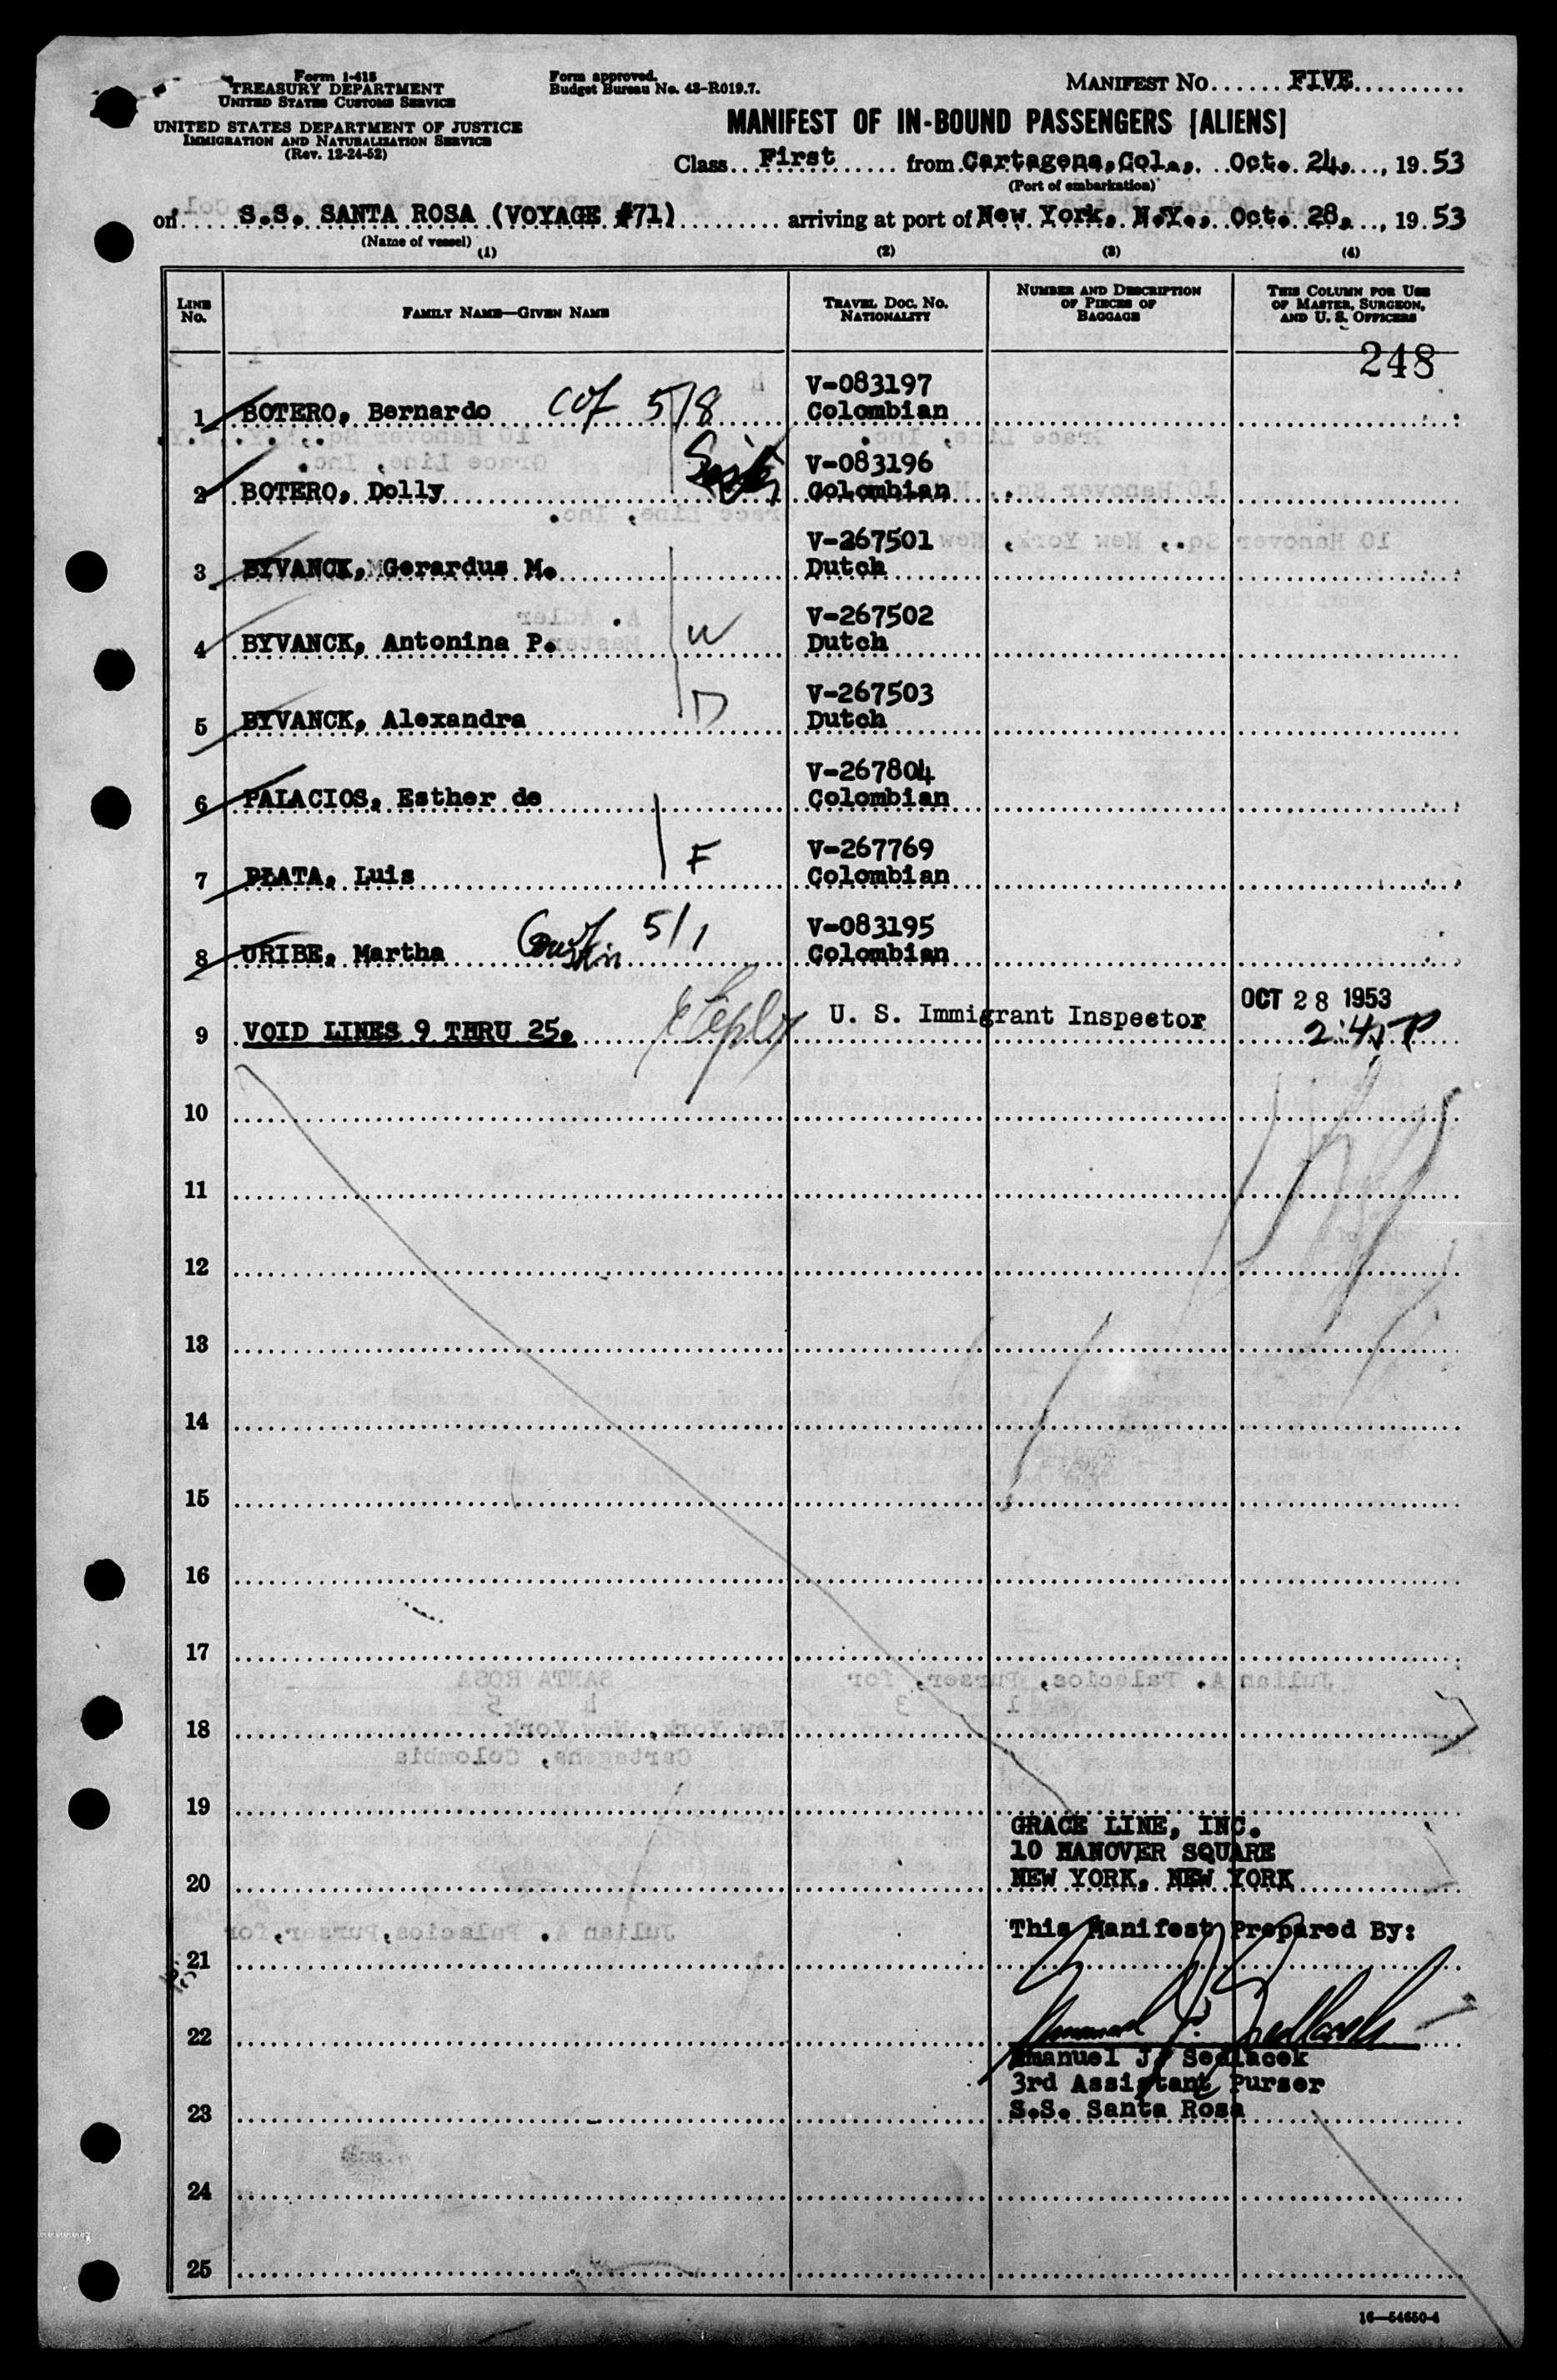 Form I-418
TREASURY DEPARTMENT
UNITED STATES CUSTOMS SERVICE
UNITED STATES DEPARTMENT OF JUSTICE
IMMIGRATION AND NATURALIZATION SERVICE
(Rev. 12-24-52)
Form approved.
Budget Bureau No. 43-R019.7.
MANIFEST NO...... FIVE..........
MANIFEST OF IN-BOUND PASSENGERS [ALIENS]
Class First from Cartagena, Col., Oct. 24, 1953
(Port of embarkation)
on S.S. SANTA ROSA (VOYAGE #71) arriving at port of New York, N.Y., Oct. 28, 1953
(Name of vessel)
(1) (2) (3) (4)
LINE No. FAMILY NAME—GIVEN NAME TRAVEL DOC. NO. NATIONALITY NUMBER AND DESCRIPTION OF PIECES OF BAGGAGE THIS COLUMN FOR USE OF MASTER, SURGEON, AND U. S. OFFICERS
248
V-083197
1 BOTERO, Bernardo 5/8 Colombian
V-083196
2 BOTERO, Dolly Colombian
V-267501
3 BYVANCK, Gerardus M. Dutch
V-267502
4 BYVANCK, Antonina P. W Dutch
V-267503
5 BYVANCK, Alexandra D Dutch
V-267804
6 PALACIOS, Esther de Colombian
V-267769
7 PLATA, Luis F Colombian
V-083195
8 URIBE, Martha 5/1 Colombian
OCT 28 1953
9 VOID LINES 9 THRU 25. U. S. Immigrant Inspector 2:45P
10
11
12
13
14
15
16
17
18
19
GRACE LINE, INC.
10 HANOVER SQUARE
20 NEW YORK, NEW YORK
This Manifest Prepared By:
21
22
Emanuel J. Sedlacek
3rd Assistant Purser
23 S.S. Santa Rosa
24
25
16—54650-4